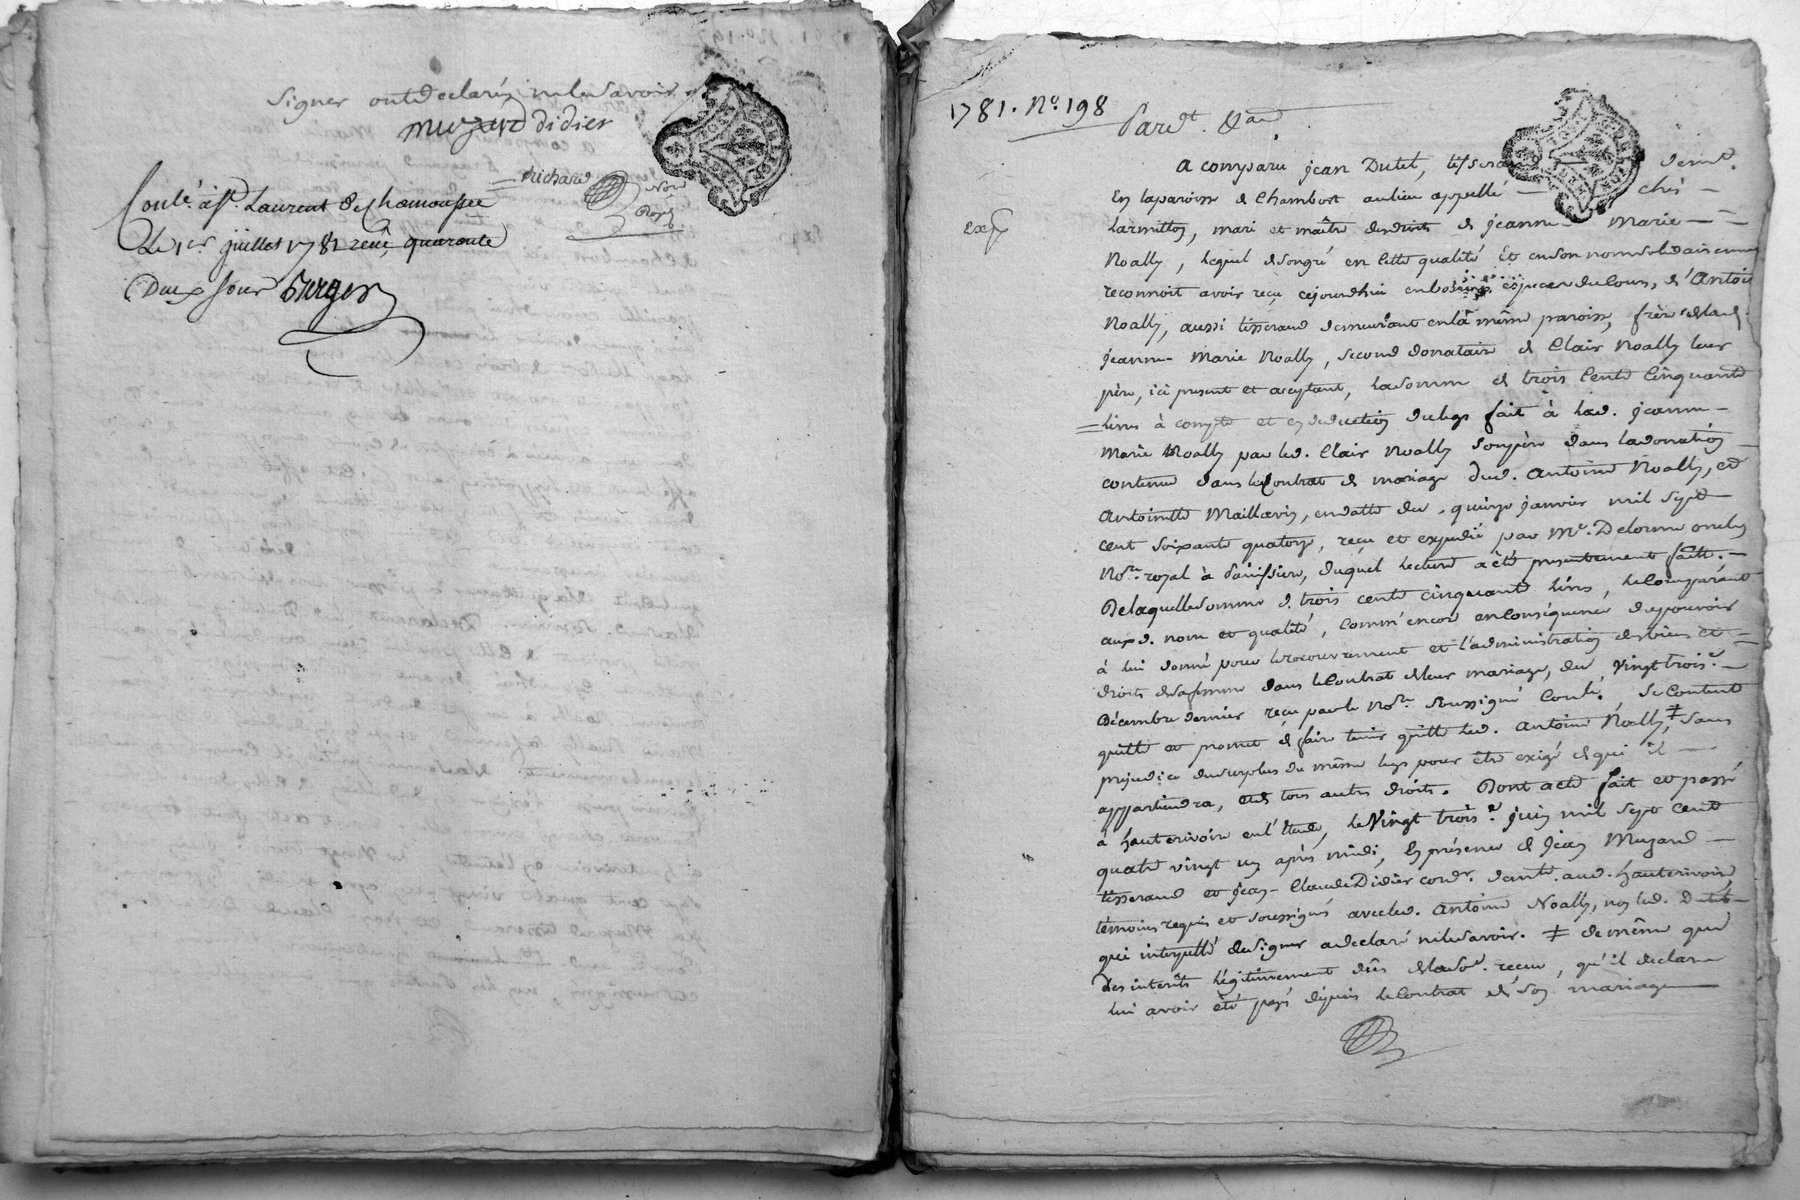 Signer ont declaré ne le savoir
muzard didier
richard Nore
Royal
Conlé à St. Laurent de Chamousset
Le 1er juillet 1781 reçû quarante
Deux sous
1781. No. 198
Pardt. &a
A comparu jean Dutel, tisserand demt.
En la paroisse de Chambost au lieu appellé
Larmitton, mari et maître des droits de jeanne Marie
exp
Noally, lequel de son gré en cette qualité et en son nom solidairement
reconnoit avoir reçu cejourdhui en bonnes especes du cours, d'Antoine
Noally, aussi tisserand demeurant en la même paroisse, frère de lad.
jeanne Marie Noally, second donataire de Clair Noally leur
père, ici present et acceptant, la somme de trois cents cinquante
livres à compte et en deduction du legs fait à lad. jeanne
Marie Noally par led. Clair Noally son père dans la donation
contenue dans le contrat de mariage dud. Antoine Noally, et
Antoinette Maillavin, en datte du quinze janvier mil sept
cent soixante quatorze, reçu et expedié par Me. Delorme
Nore. royal à Panissiere, duquel lecture a été presentement faitte.
De laquelle somme de trois cents cinquante livres, le comparant
auxd. nom et qualité, comm'encore en consequence du pouvoir
à lui donné pour le recouvrement et l'administration des biens et
droits de sa femme dans le contrat de leur mariage, du vingt trois
Décembre dernier reçu par le Nore. soussigné Conlé. se contente
quitte et promet de faire tenir quitte led. Antoine Noally, ≠ sans
prejudice du surplus du même legs pour être exigé de qui il
appartiendra, et de tous autres droits. Dont acte fait et passé
à hauterivoire en l'Etude, le Vingt trois juin mil sept cent
quatre vingt un après midi, En présence de jean Muzard
tisserand et jean-Claude Didier cordr. demt. aud. hauterivoire
témoins requis et soussignés avec led. Antoine Noally, non led. Dutel
qui interpellé de signer a declaré ne le savoir. ≠ de même que
Des interêts légitimement dûs de lad. se. reçue, qu'il declare
lui avoir été payé depuis le contrat de son mariage